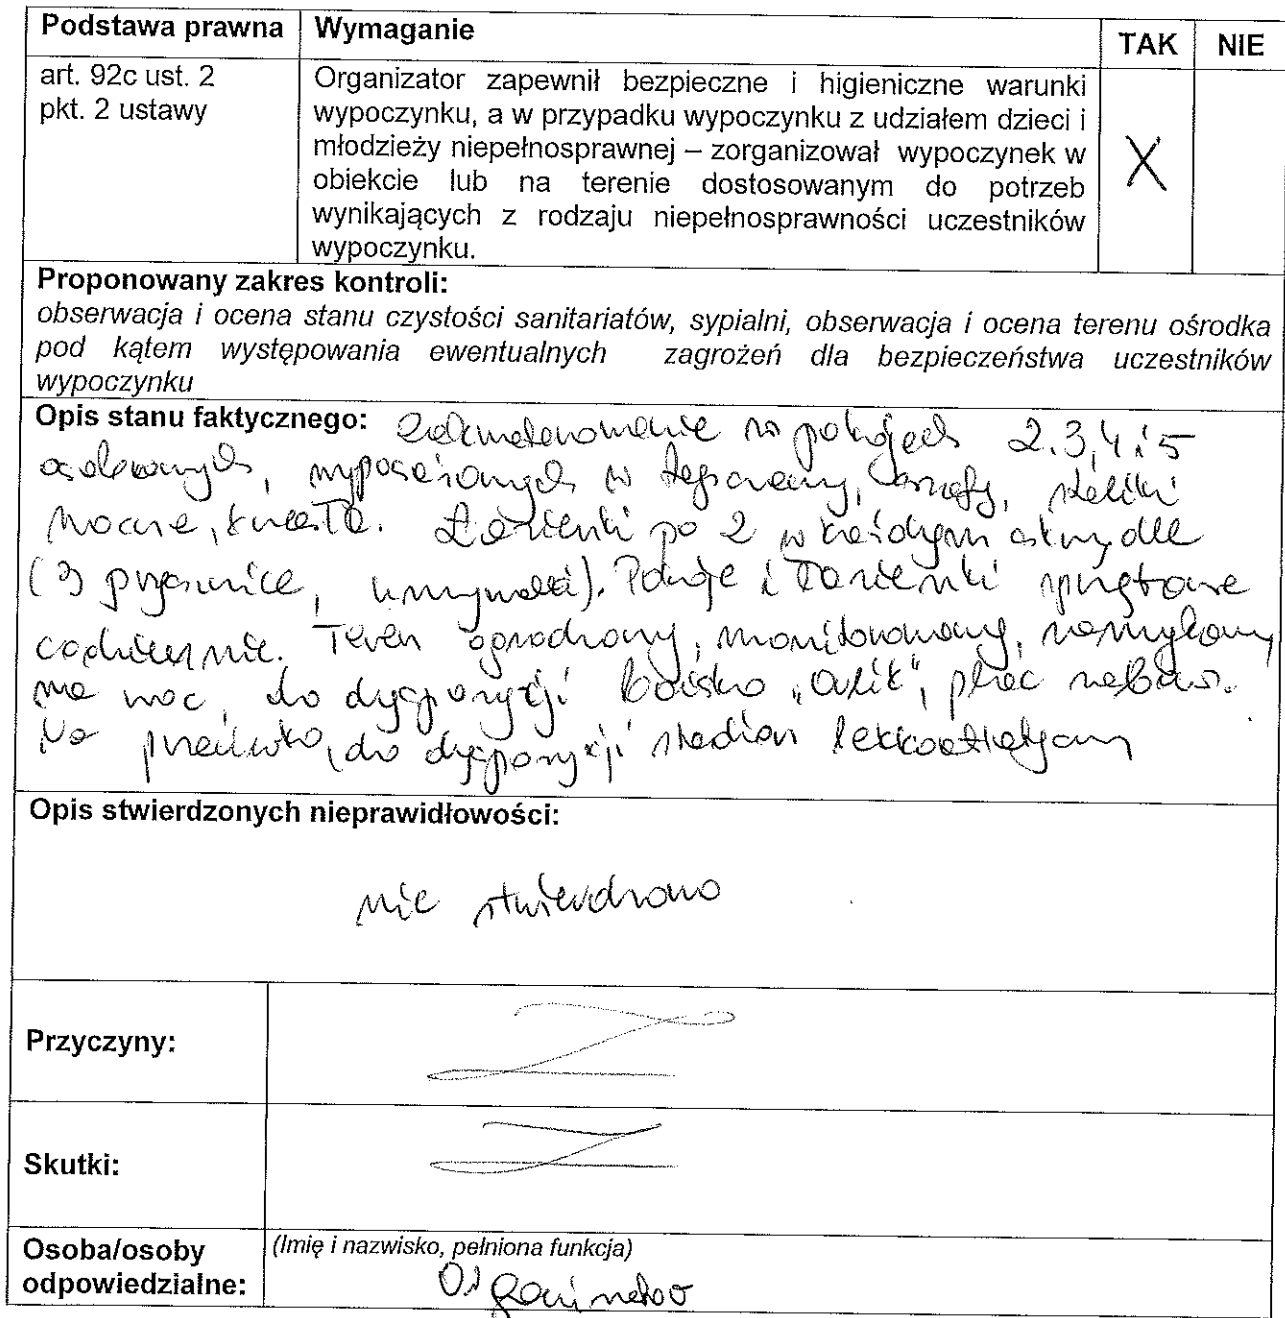 Podstawa prawna Wymaganie TAK NIE
art. 92c ust. 2
pkt. 2 ustawy
Organizator zapewnił bezpieczne i higieniczne warunki
wypoczynku, a w przypadku wypoczynku z udziałem dzieci i
młodzieży niepełnosprawnej – zorganizował wypoczynek w
obiekcie lub na terenie dostosowanym do potrzeb
wynikających z rodzaju niepełnosprawności uczestników
wypoczynku.
X
Proponowany zakres kontroli:
obserwacja i ocena stanu czystości sanitariatów, sypialni, obserwacja i ocena terenu ośrodka
pod kątem występowania ewentualnych zagrożeń dla bezpieczeństwa uczestników
wypoczynku
Opis stanu faktycznego: Zakwaterowanie w pokojach 2,3,4 i 5
osobowych, wyposażonych w tapczany, szafy, stoliki
nocne, krzesła. Łazienki po 2 w każdym skrzydle
(3 prysznice, umywalki). Pokoje i łazienki sprzątane
codziennie. Teren ogrodzony, monitorowany, zamykany
na noc, do dyspozycji boisko „orlik", plac zabaw.
Na przeciwko, do dyspozycji stadion lekkoatletyczny
Opis stwierdzonych nieprawidłowości:
nie stwierdzono
Przyczyny:
Skutki:
Osoba/osoby
odpowiedzialne:
(Imię i nazwisko, pełniona funkcja)
Organizator